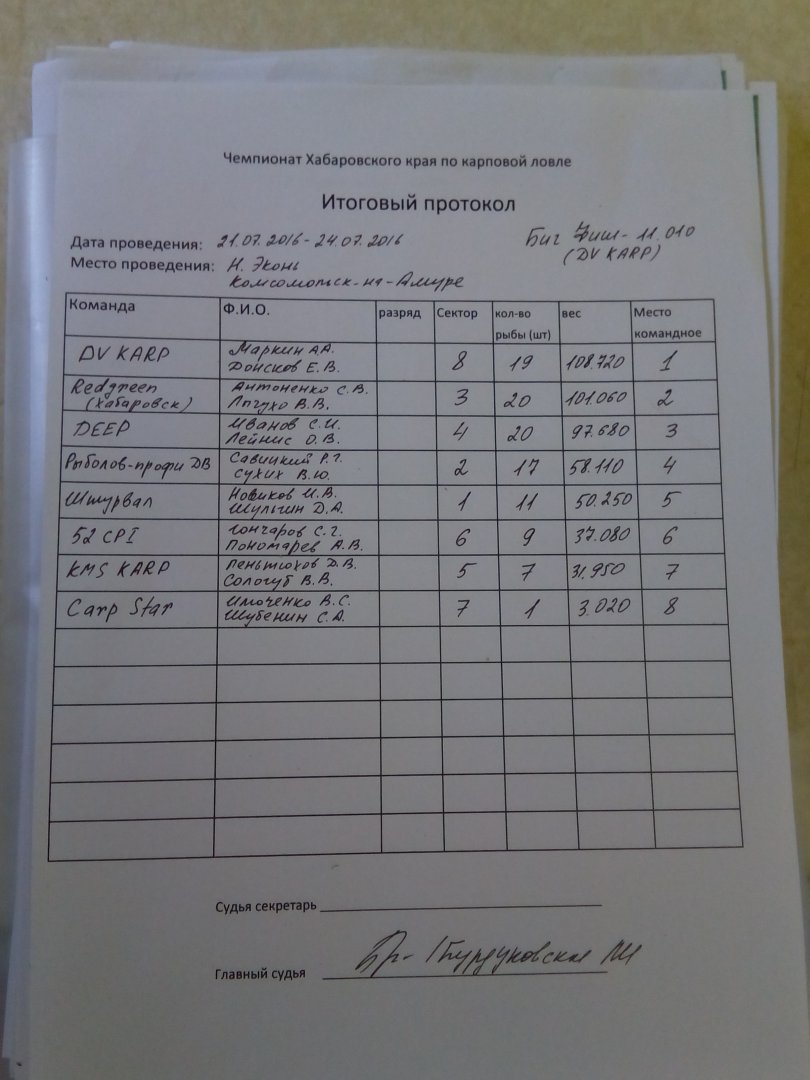 Чемпионат Хабаровского края по карповой ловле
Итоговый протокол
Дата проведения: 21.07.2016 - 24.07.2016
Биг Фиш - 11.010
(DV KARP)
Место проведения: Н. Эконь
Комсомольск-на-Амуре
Команда Ф.И.О. разряд Сектор кол-во рыбы (шт) вес Место командное
DV KARP Маркин А.А. 8 19 108.720 1
Донсков Е.В.
Redgreen Антоненко С.В. 3 20 101.060 2
(Хабаровск) В.В.
DEEP Иванов С.И. 4 20 97.680 3
Лейнис О.В.
Рыболов-профи ДВ Савицкий Р.Г. 2 17 58.110 4
Сухих В.Ю.
Штурвал Новиков И.В. 1 11 50.250 5
Шульгин Д.А.
52 CPI Гончаров С.Г. 6 9 37.080 6
Пономарев А.В.
KMS KARP Пеньтюхов Д.В. 5 7 31.950 7
Сологуб В.В.
Carp Star Имоченко В.С. 7 1 3.020 8
Шубенин С.А.
Судья секретарь
Главный судья